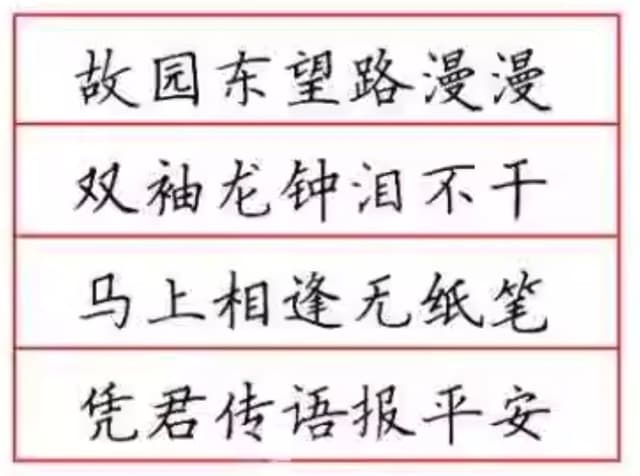 故园东望路漫漫
双袖龙钟泪不干
马上相逢无纸笔
凭君传语报平安